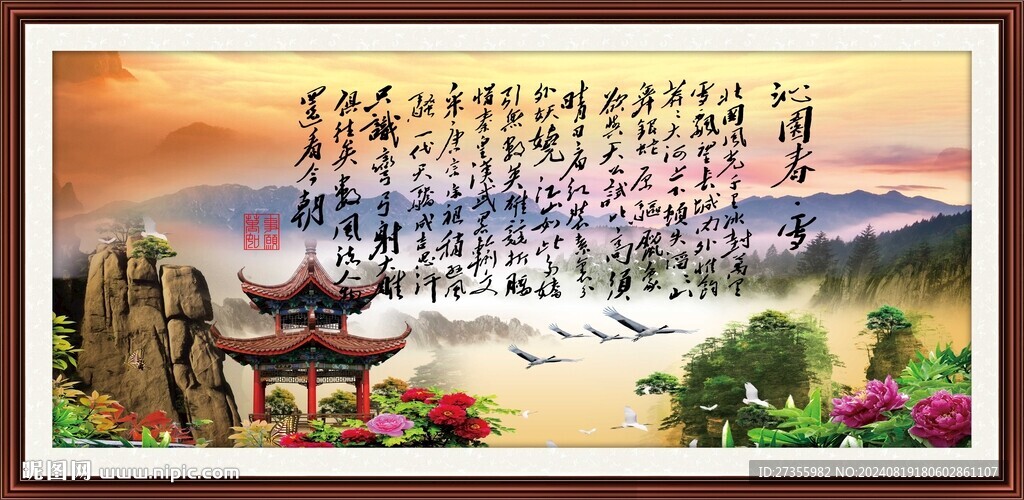 沁園春·雪
北國風光千里冰封萬里
雪飄望長城内外惟餘
莽々大河上下頓失滔々山
舞銀蛇原驅臘象
欲與天公試比高須
晴日看紅裝素裹分
外妖嬈江山如此多嬌
引無數英雄競折腰
惜秦皇漢武略輸文
采唐宗宋祖稍遜風
騷一代天驕成吉思汗
只識彎弓射大雕
俱往矣數風流人物
還看今朝
昵图网 www.nipic.com
ID:27355982 NO:20240819180602861107